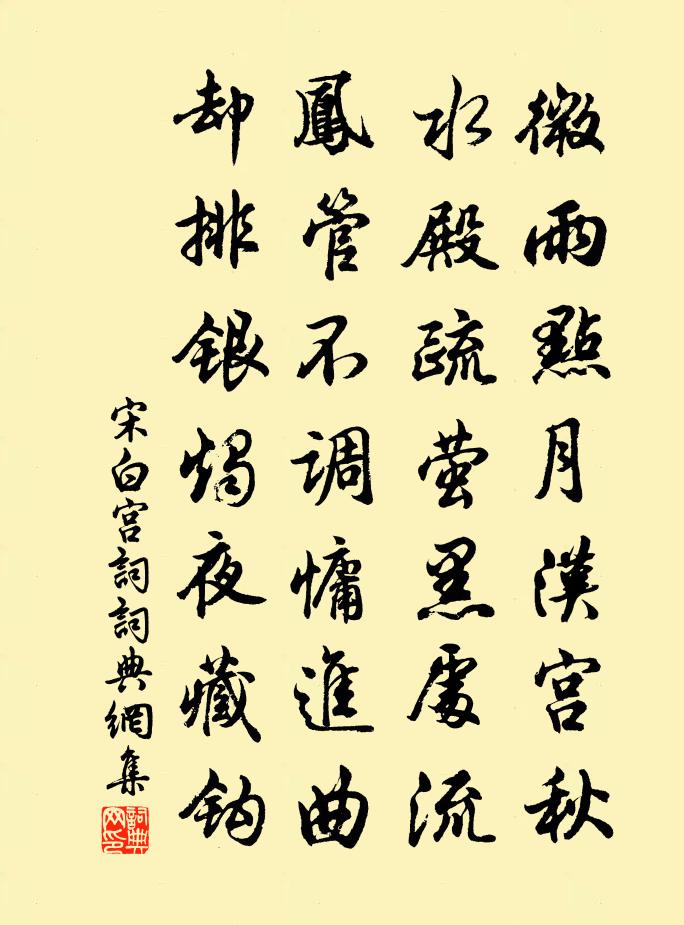 微雨點月漢宮秋
水殿疏螢黑處流
鳳管不調慵進曲
却排銀燭夜藏鈎
宋白宮詞詞典網集
詞典網印